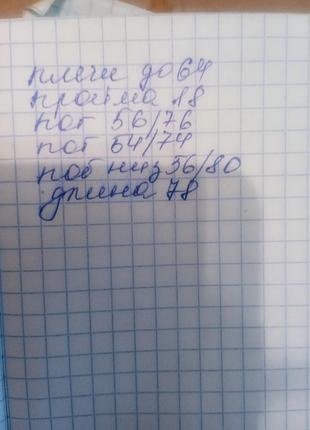 плечи до 64
пройма 18
пог 56/76
пот 54/74
поб низ 56/80
длина 78